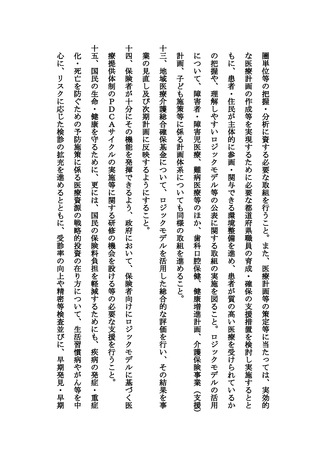 圏単位等の把握・分析に資する必要な取組を行うこと。また、医療計画等の策定等に当たっては、実効的
な医療計画の作成等を実現するために必要な都道府県職員の育成・確保の支援措置を検討し実施するとと
もに、患者・住民が主体的に参画・関与できる環境整備を進め、患者が質の高い医療を受けられているか
の把握や、理解しやすいロジックモデル等の公表に関する取組の実施を図ること。ロジックモデルの活用
について、障害者・障害児医療、難病医療等のほか、歯科口腔保健、健康増進計画、介護保険事業（支援）
計画、子ども施策等に係る計画体系についても同様の取組を進めること。
十三、地域医療介護総合確保基金について、ロジックモデルを活用した総合的な評価を行い、その結果を事
業の見直し及び次期計画に反映するようにすること。
十四、保険者が十分にその機能を発揮できるよう、政府において、保険者向けにロジックモデルに基づく医
療提供体制のＰＤＣＡサイクルの実施等に関する研修の機会を設ける等の必要な支援を行うこと。
十五、国民の生命・健康を守るために、更には、国民の保険料負担を軽減するためにも、疾病の発症・重症
化・死亡を防ぐための予防施策に係る医療資源の戦略的投資の在り方について、生活習慣病やがん等を中
心に、リスクに応じた検診の拡充を進めるとともに、受診率の向上や精密等検査並びに、早期発見・早期